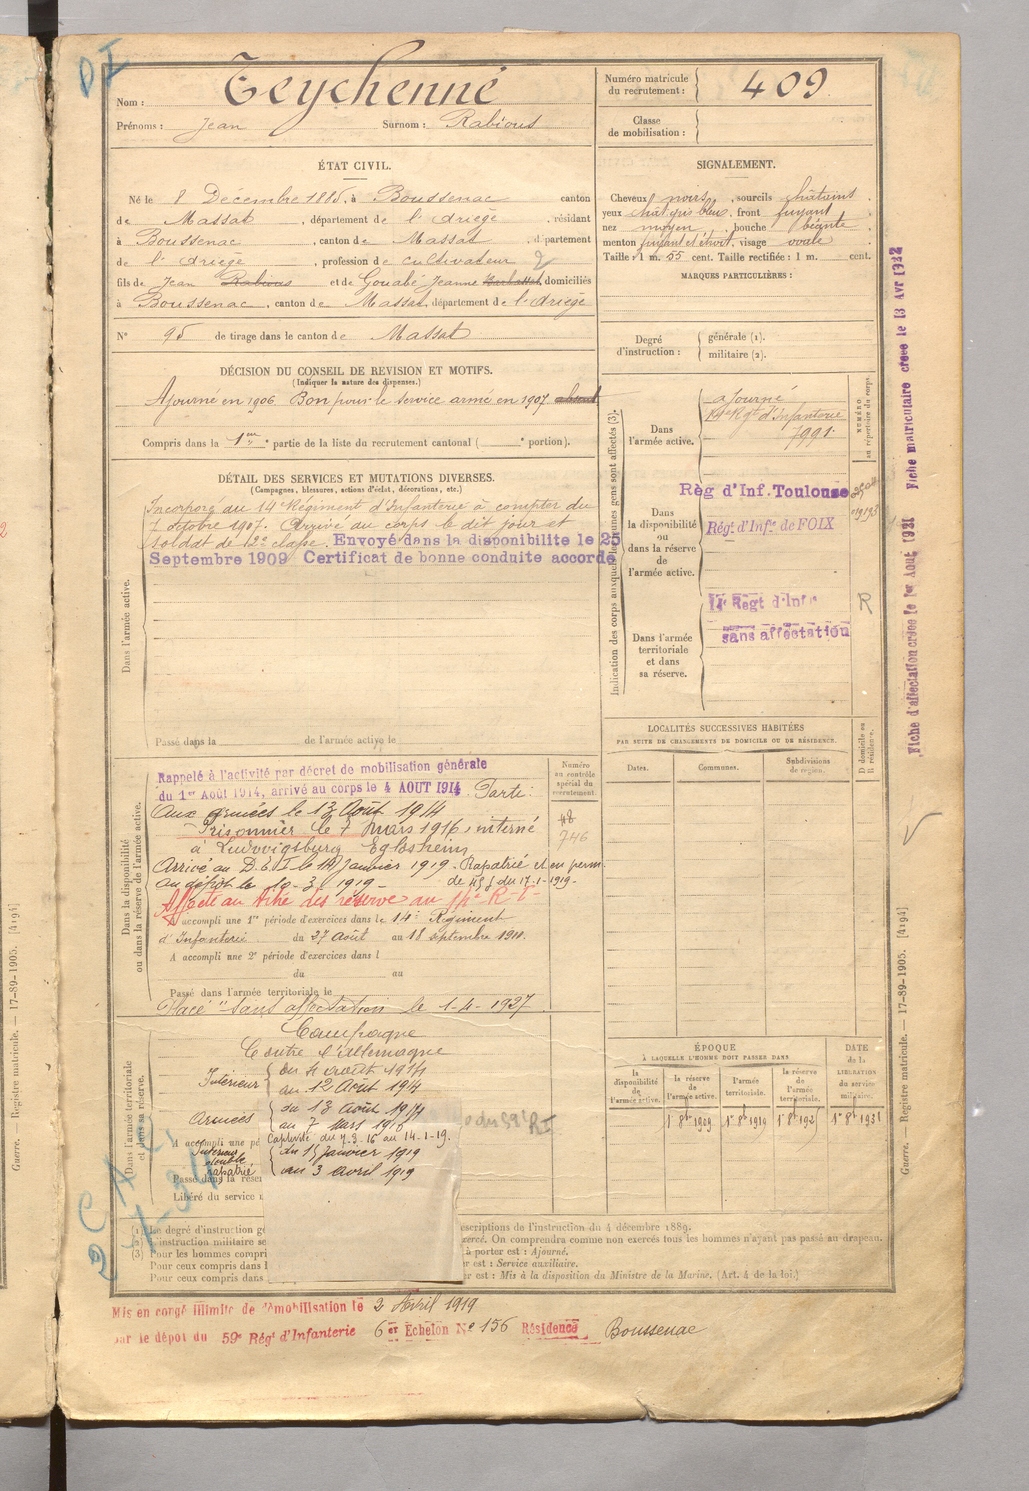 Nom : Teychenné
Prénoms : Jean Surnom : Rabious
Numéro matricule du recrutement : 409
Classe de mobilisation :
ÉTAT CIVIL.
Né le 8 Décembre 1885, à Boussenac canton
de Massat, département de l'Ariège, résidant
à Boussenac, canton de Massat, département
de l'Ariège, profession de cultivateur 2
fils de Jean Rabious et de Gouabé Jeanne domiciliés
à Boussenac, canton de Massat, département de l'Ariège
N° 95 de tirage dans le canton de Massat
SIGNALEMENT.
Cheveux noirs, sourcils châtains
yeux chat. gris bleu, front fuyant
nez moyen, bouche béante
menton fuyant et étroit, visage ovale
Taille : 1 m. 55 cent. Taille rectifiée : 1 m. cent.
MARQUES PARTICULIÈRES :
Degré d'instruction : générale (1).
militaire (2).
DÉCISION DU CONSEIL DE REVISION ET MOTIFS.
(Indiquer la nature des dispenses.)
Ajourné en 1906 Bon pour le service armé en 1907 absent
Compris dans la 1re partie de la liste du recrutement cantonal ( e portion).
DÉTAIL DES SERVICES ET MUTATIONS DIVERSES.
(Campagnes, blessures, actions d'éclat, décorations, etc.)
Dans l'armée active.
Incorporé au 14e Régiment d'Infanterie à compter du
7 octobre 1907. Arrivé au corps le dit jour et
soldat de 2e classe. Envoyé dans la disponibilite le 25
Septembre 1909 Certificat de bonne conduite accordé
Passé dans la de l'armée active le
Indication des corps auxquels les jeunes gens sont affectés (3).
NUMÉRO au répertoire du corps.
Dans l'armée active.
ajourné
14e Rgt d'Infanterie
7991
Dans la disponibilité ou dans la réserve de l'armée active.
Règ d'Inf. Toulouse
Régt. d'Infie de FOIX
Dans l'armée territoriale et dans sa réserve.
14e Regt d'Infie
sans affectation
R
Dans la disponibilité ou dans la réserve de l'armée active.
Rappelé à l'activité par décret de mobilisation générale
du 1er Août 1914, arrivé au corps le 4 AOUT 1914. Parti
aux armées le 13 Août 1914
Prisonnier le 7 mars 1916, interné
à Ludwigsburg Eglosheim
Arrivé au D.E.I. le 14 Janvier 1919. Rapatrié et en perm.
au dépôt le 10-3-1919 - de du 17-1-1919.
Affecté au titre des réserves au 14e R.I.
A accompli une 1re période d'exercices dans le 14e Régiment
d'Infanterie du 27 Août au 18 septembre 1911.
A accompli une 2e période d'exercices dans l
du au
Passé dans l'armée territoriale le
Placé "Sans affectation le 1-4-1927
Numéro au contrôle spécial du recrutement.
48
746
LOCALITÉS SUCCESSIVES HABITÉES
PAR SUITE DE CHANGEMENTS DE DOMICILE OU DE RÉSIDENCE.
Dates. Communes. Subdivisions de région. D domicile ou R résidence.
Dans l'armée territoriale et dans sa réserve.
Campagne
Contre l'allemagne
Intérieur { du 4 août 1914
au 12 Août 1914
Armées { du 13 Août 1914
au 7 Mars 1916
Captivité du 7.3.16 au 14-1-19.
Intérieur double rapatrié { du 15 janvier 1919
au 3 avril 1919
A accompli une pé
Passé dans la réser
Libéré du service
ÉPOQUE
À LAQUELLE L'HOMME DOIT PASSER DANS
la disponibilité de l'armée active. la réserve de l'armée active. l'armée territoriale. la réserve de l'armée territoriale.
DATE de la LIBÉRATION du service militaire.
1er 8bre 1909 1er 8bre 1919 1er 8bre 1925 1er 8bre 1931
(1) Le degré d'instruction gé
(2) L'instruction militaire se
(3) Pour les hommes compri
Pour ceux compris dans l
Pour ceux compris dans
escriptions de l'instruction du 4 décembre 1889.
xercé. On comprendra comme non exercés tous les hommes n'ayant pas passé au drapeau.
à porter est : Ajourné.
er est : Service auxiliaire.
er est : Mis à la disposition du Ministre de la Marine. (Art. 4 de la loi.)
Mis en congé illimité de démobilisation le 2 Avril 1919
par le dépot du 59e Régt d'Infanterie 6er Echelon No 156 Résidence Boussenac
Fiche matriculaire créée le 13 Avr 1922
Fiche d'affectation créée le 1er Août 1921
Guerre. — Registre matricule. — 17-89-1905. [4194]
Guerre. — Registre matricule. — 17-89-1905. [4194]